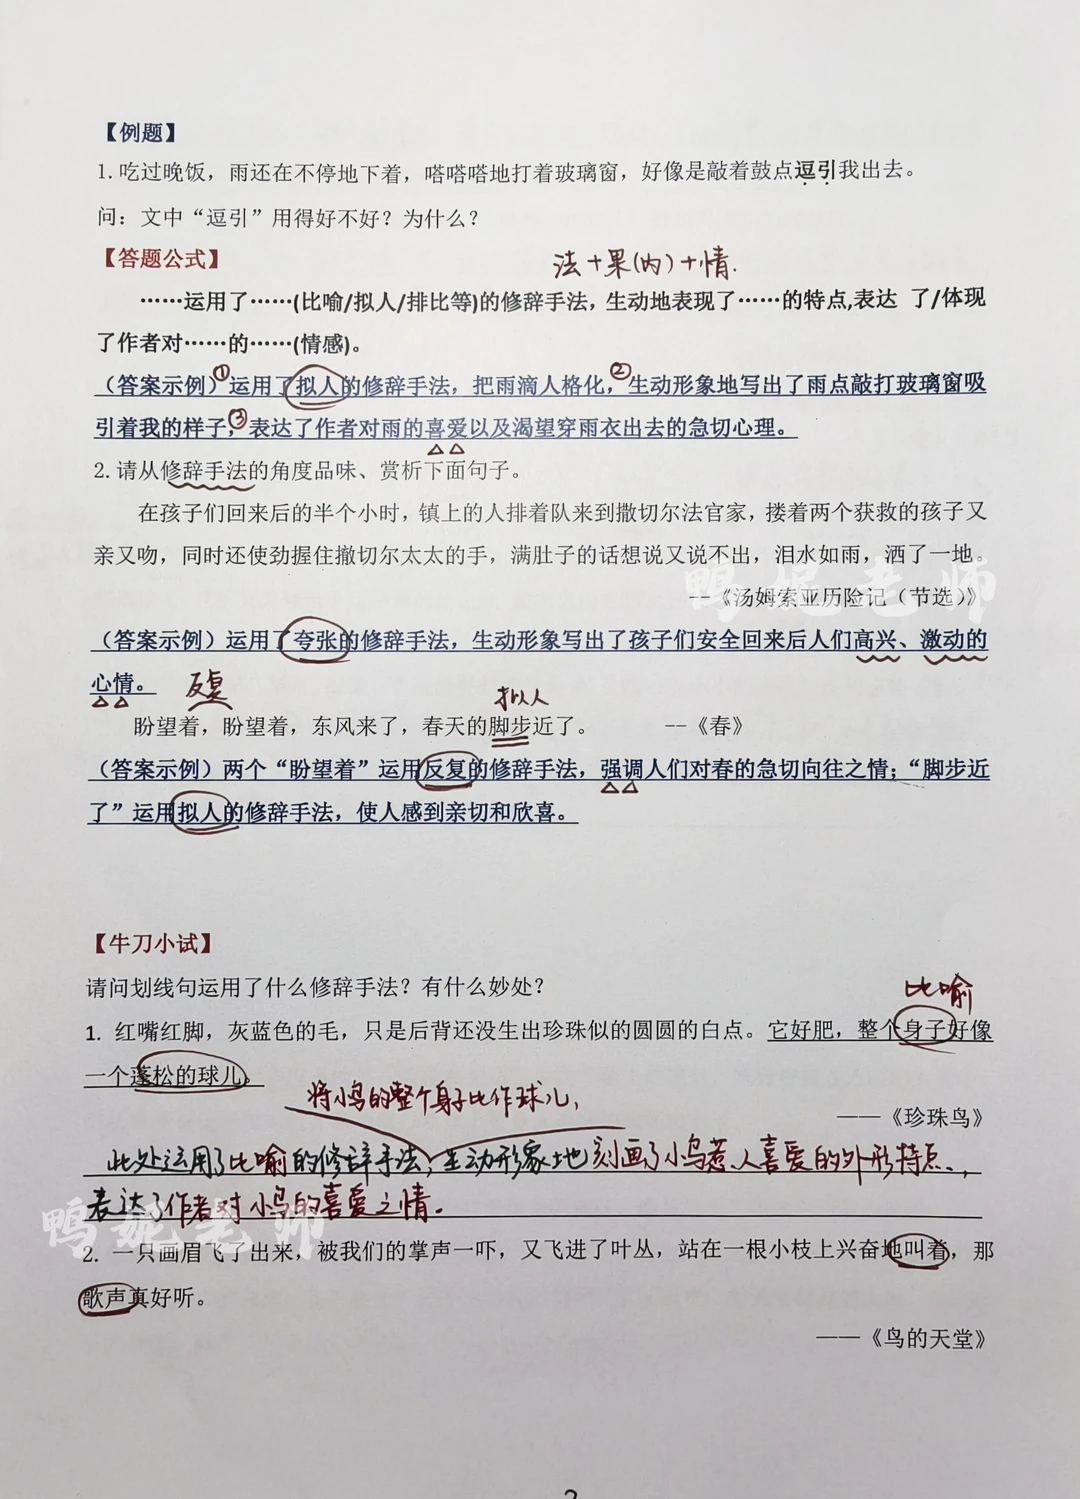 【例题】
1. 吃过晚饭，雨还在不停地下着，嗒嗒嗒地打着玻璃窗，好像是敲着鼓点逗引我出去。
问：文中“逗引”用得好不好？为什么？
【答题公式】
法+果(内)+情.
……运用了……(比喻/拟人/排比等)的修辞手法，生动地表现了……的特点,表达 了/体现
了作者对……的……(情感)。
（答案示例）①运用了拟人的修辞手法，把雨滴人格化，②生动形象地写出了雨点敲打玻璃窗吸
引着我的样子，③表达了作者对雨的喜爱以及渴望穿雨衣出去的急切心理。
2. 请从修辞手法的角度品味、赏析下面句子。
在孩子们回来后的半个小时，镇上的人排着队来到撒切尔法官家，搂着两个获救的孩子又
亲又吻，同时还使劲握住撤切尔太太的手，满肚子的话想说又说不出，泪水如雨，洒了一地。
鸭妮老师
--《汤姆索亚历险记（节选）》
（答案示例）运用了夸张的修辞手法，生动形象写出了孩子们安全回来后人们高兴、激动的
心情。
反复
拟人
盼望着，盼望着，东风来了，春天的脚步近了。 --《春》
（答案示例）两个“盼望着”运用反复的修辞手法，强调人们对春的急切向往之情；“脚步近
了”运用拟人的修辞手法，使人感到亲切和欣喜。
【牛刀小试】
请问划线句运用了什么修辞手法？有什么妙处？
比喻
1. 红嘴红脚，灰蓝色的毛，只是后背还没生出珍珠似的圆圆的白点。它好肥，整个身子好像
一个蓬松的球儿。
将小鸟的整个身子比作球儿，
——《珍珠鸟》
此处运用了比喻的修辞手法，生动形象地刻画了小鸟惹人喜爱的外形特点，
表达了作者对小鸟的喜爱之情。
鸭妮老师
2. 一只画眉飞了出来，被我们的掌声一吓，又飞进了叶丛，站在一根小枝上兴奋地叫着，那
歌声真好听。
——《鸟的天堂》
2